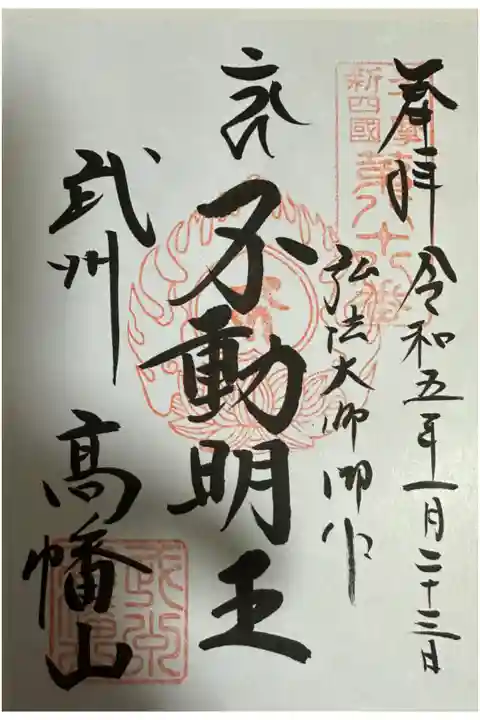 奉拝 令和五年一月二十三日
新四國
弘法大師御作
不動明王
武州 高幡山